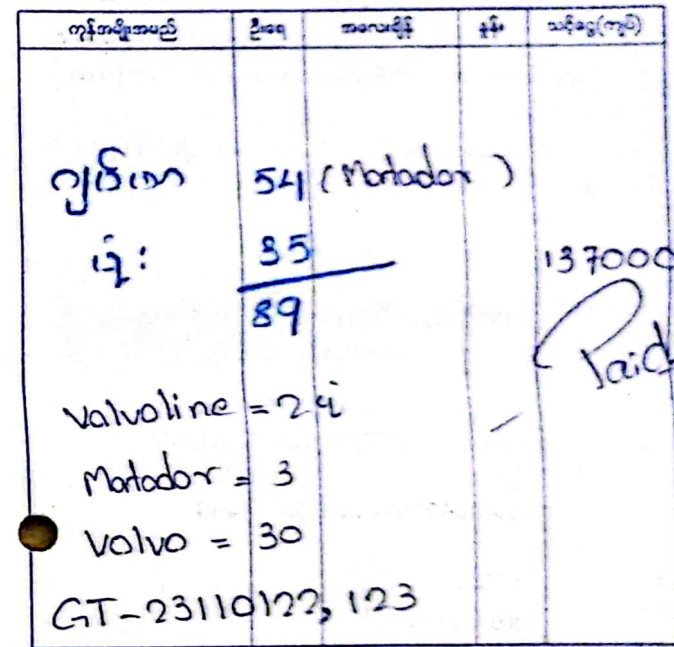 ကုန်အမျိုးအမည် ဦးရေ အလေးချိန် နှုန်း သင့်ငွေ(ကျပ်)
ဂျပ်ဖာ 54 (Matador)
ပုံး 35 137000
89
Paid
Valvoline = 2 ပုံး
Matador = 3
Volvo = 30
GT-23110122, 123